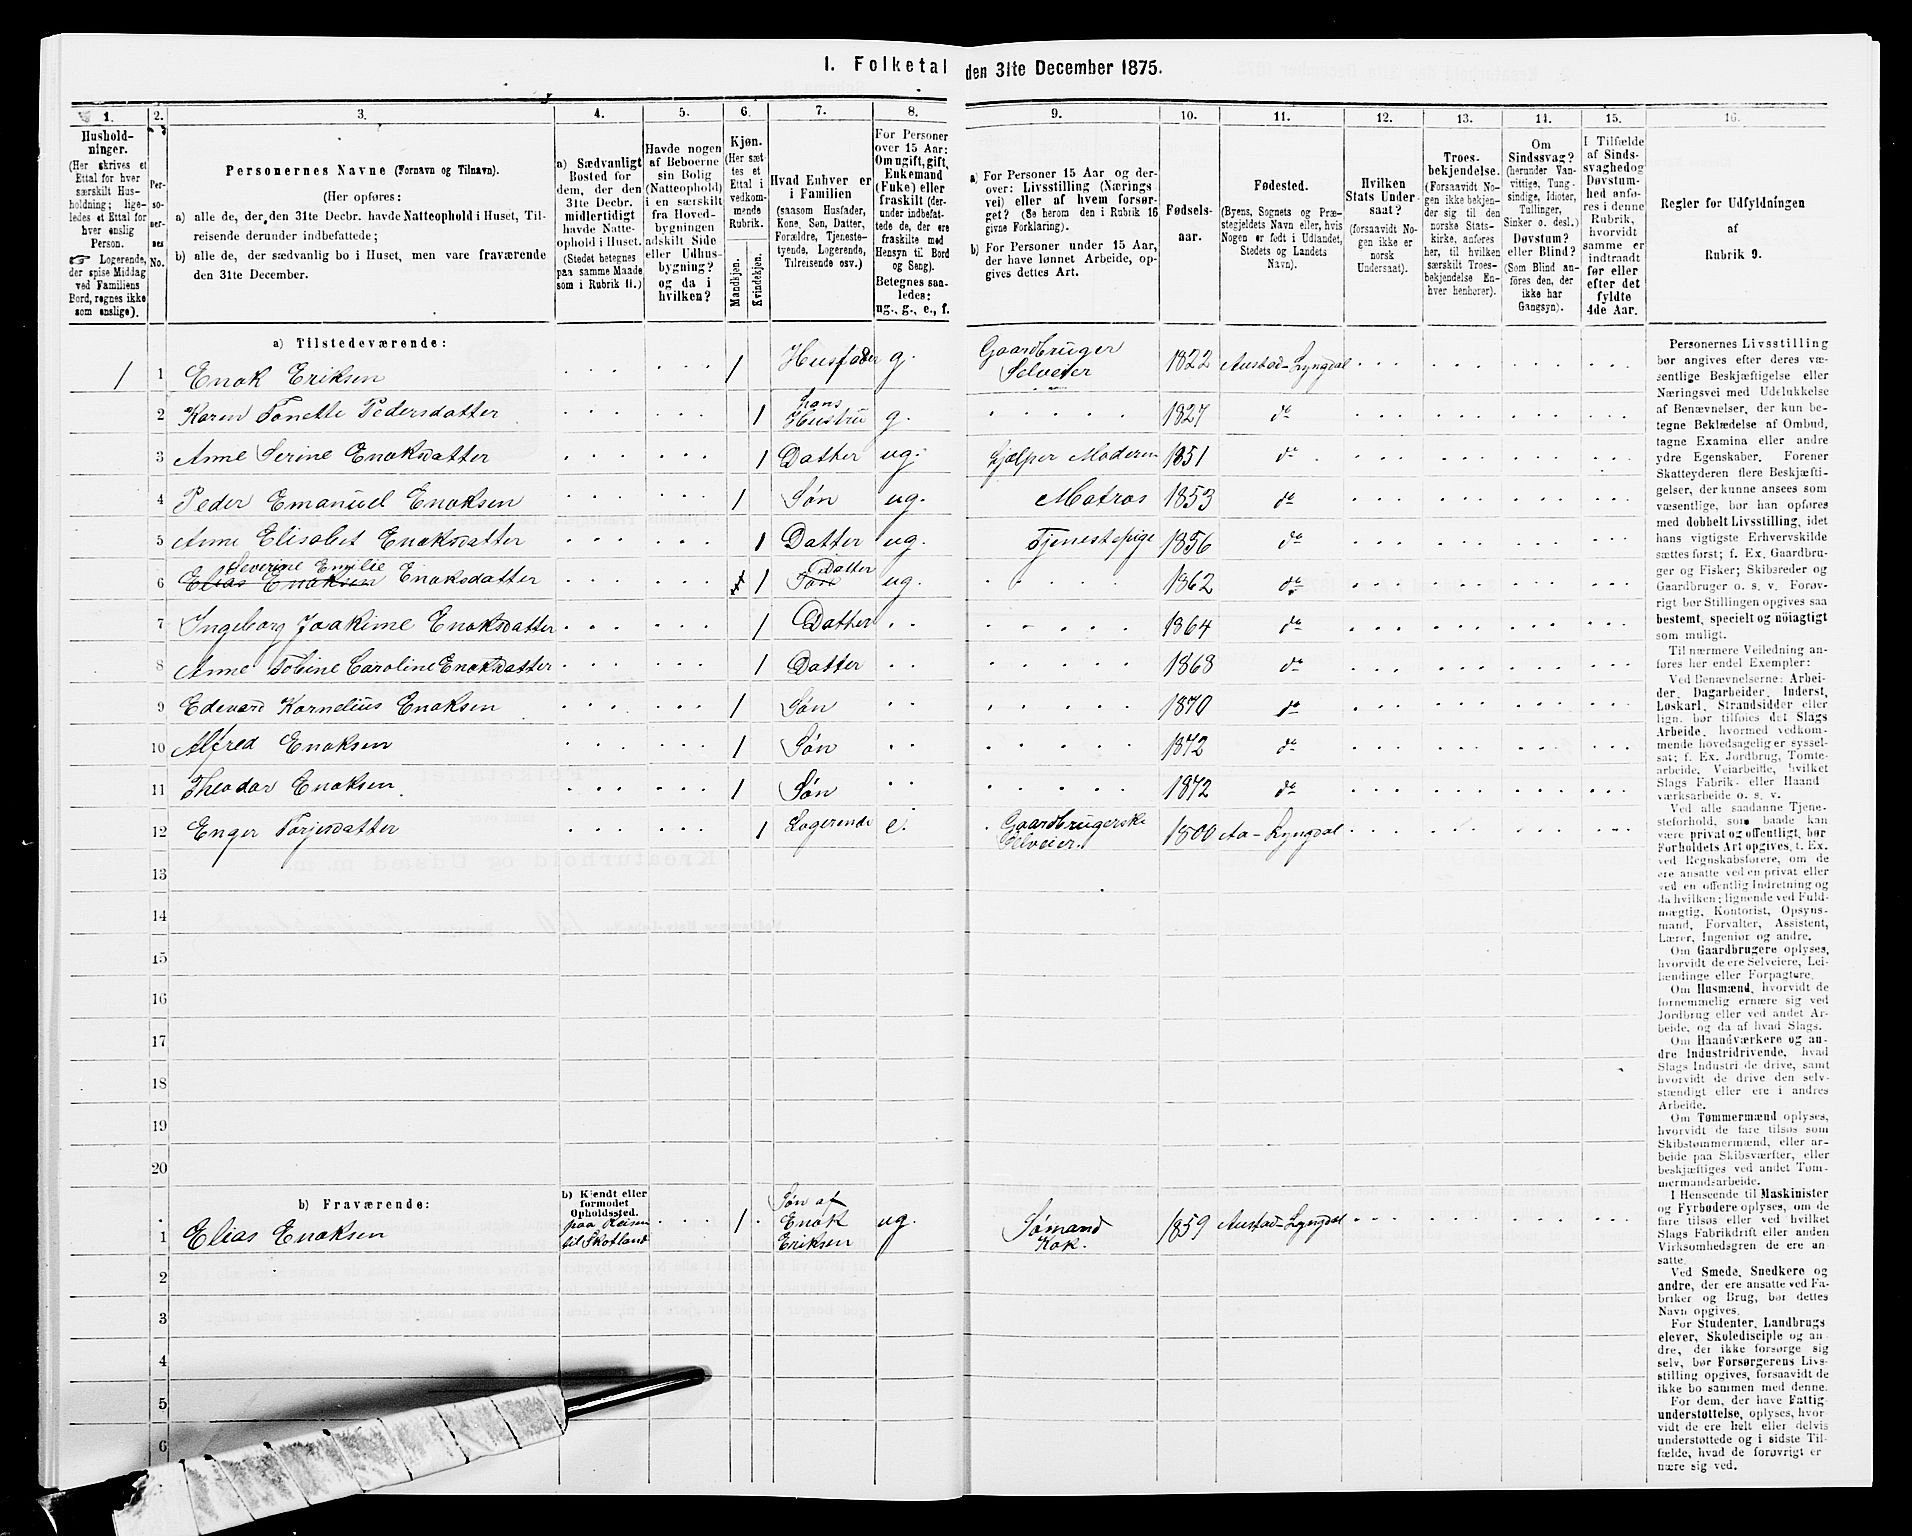 1. Folketal den 31te December 1875.
1. 2. 3. 4. 5. 6. 7. 8. 9. 10. 11. 12. 13. 14. 15. 16.
Hushold-
ninger.
(Her skrives et
Ettal for hver
særskilt Hus-
holdning; lige-
ledes et Ettal for
hver enslig
Person.
☞ Logerende,
der spise Middag
ved Familiens
Bord, regnes ikke
som enslige).
Per-
so-
ner-
nes
No.
Personernes Navne (Fornavn og Tilnavn).
(Her opføres:
a) alle de, der den 31te Decbr. havde Natteophold i Huset, Til-
reisende derunder indbefattede;
b) alle de, der sædvanlig bo i Huset, men vare fraværende
den 31te December.
a) Sædvanligt
Bosted for
dem, der den
31te Decbr.
midlertidigt
havde Natte-
ophold i Huset.
(Stedet betegnes
paa samme Maade
som i Rubrik 11.)
Havde nogen
af Beboerne
sin Bolig
(Natteophold)
i en særskilt
fra Hoved-
bygningen
adskilt Side
eller Udhus-
bygning?
og da i
hvilken?
Kjøn.
(Her sæt-
tes et
Ettal i
vedkom-
mende
Rubrik.
Mandkjøn.
Kvindekjøn.
Hvad Enhver er
i Familien
(saasom Husfader,
Kone, Søn, Datter,
Forældre, Tjeneste-
tyende, Logerende,
Tilreisende osv.)
For Personer
over 15 Aar:
Om ugift, gift,
Enkemand
(Enke) eller
fraskilt (der-
under indbefat-
tede de, der ere
fraskilte med
Hensyn til Bord
og Seng).
Betegnes saa-
ledes:
ug., g., e., f.
a) For Personer 15 Aar og der-
over: Livsstilling (Nærings-
vei) eller af hvem forsør-
get? (Se herom den i Rubrik 16
givne Forklaring).
b) For Personer under 15 Aar,
der have lønnet Arbeide, op-
gives dettes Art.
Fødsels-
aar.
Fødested.
(Byens, Sognets og Præ-
stegjeldets Navn eller, hvis
Nogen er født i Udlandet,
Stedets og Landets
Navn).
Hvilken
Stats Under-
saat?
(forsaavidt No-
gen ikke er
norsk
Undersaat).
Troes-
bekjendelse.
(Forsaavidt No-
gen ikke bekjen-
der sig til den
norske Stats-
kirke, anføres
her, til hvilken
særskilt Troes-
bekjendelse En-
hver henhører).
Om
Sindssvag?
(herunder Van-
vittige, Tung-
sindige, Idioter,
Tullinger,
Sinker o. desl.)
Døvstum?
eller Blind?
(Som Blind an-
føres den, der
ikke har
Gangsyn).
I Tilfælde
af Sinds-
svaghed og
Døvstum-
hed anfø-
res i denne
Rubrik,
hvorvidt
samme er
indtraadt
før eller
efter det
fyldte
4de Aar.
Regler for Udfyldningen
af
Rubrik 9.
a) Tilstedeværende:
1 1 Enok Eriksen 1 Husfader g. Gaardbruger Selveier 1822 Austad-Lyngdal
2 Karen Tonette Pedersdatter 1 hans Hustru g. 1827 do
3 Anne Serine Enoksdatter 1 Datter ug. hjælper Moderen 1851 do
4 Peder Emanuel Enoksen 1 Søn ug. Matros 1853 do
5 Anne Elisabet Enoksdatter 1 Datter ug. Tjenestepige 1856 do
Severine Emilie
6 Elias Enoksen Enoksdatter 1 1 Søn Datter ug. 1862 do
7 Ingeborg Joakime Enoksdatter 1 Datter 1864 do
8 Anne Tobine Caroline Enoksdatter 1 Datter 1868 do
9 Edevard Kornelius Enoksen 1 Søn 1870 do
10 Alfred Enoksen 1 Søn 1872 do
11 Theodor Enoksen 1 Søn 1872 do
12 Enger Torjesdatter 1 Logerende e. Gaardbrugerske Selveier. 1800 Aa-Lyngdal
13
14
15
16
17
18
19
20
b) Fraværende:
b) Kjendt eller
formodet
Opholdssted.
1 Elias Enoksen paa Reisen til Skotland 1 Søn af Enok Eriksen ug. Sømand Kok. 1859 Austad-Lyngdal
2
3
4
5
6
Personernes Livsstilling
bør angives efter deres væ-
sentlige Beskjæftigelse eller
Næringsvei med Udelukkelse
af Benævnelser, der kun be-
tegne Beklædelse af Ombud,
tagne Examina eller andre
ydre Egenskaber. Forener
Skatteyderen flere Beskjæfti-
gelser, der kunne ansees som
væsentlige, bør han opføres
med dobbelt Livsstilling, idet
hans vigtigste Erhvervskilde
sættes først; f. Ex. Gaardbru-
ger og Fisker; Skibsreder og
Gaardbruger o. s. v. Forøv-
rigt bør Stillingen opgives saa
bestemt, specielt og nöiagtigt
som muligt.
Til nærmere Veiledning an-
føres her endel Exempler:
Ved Benævnelserne: Arbei-
der, Dagarbeider, Inderst,
Løskarl, Strandsidder eller
lign. bør tilføies det Slags
Arbeide, hvormed vedkom-
mende hovedsagelig er syssel-
sat; f. Ex. Jordbrug, Tomte-
arbeide, Veiarbeide, hvilket
Slags Fabrik- eller Haand-
værksarbeide o. s. v.
Ved alle saadanne Tjene-
steforhold, som baade kan
være privat og offentligt, bør
Forholdets Art opgives, f. Ex.
ved Regnskabsførere, om de
ere ansatte ved en privat eller
ved en offentlig Indretning og
da hvilken; lignende ved Fuld-
mægtig, Kontorist, Opsyns-
mand, Forvalter, Assistent,
Lærer, Ingeniør og andre.
Om Gaardbrugere oplyses,
hvorvidt de ere Selveiere, Lei-
lændinge eller Forpagtere.
Om Husmænd, hvorvidt de
fornemmelig ernære sig ved
Jordbrug eller ved andet Ar-
beide, og da af hvad Slags.
Om Haandværkere og an-
dre Industridrivende, hvad
Slags Industri de drive, samt
hvorvidt de drive den selv-
stændigt eller ere i andres
Arbeide.
Om Tømmermænd oplyses,
hvorvidt de fare tilsøs som
Skibstømmermænd, eller ar-
beide paa Skibsværfter, eller
beskjæftiges ved andet Tøm-
mermandsarbeide.
I Henseende til Maskinister
og Fyrbødere oplyses, om de
fare tilsøs eller ved hvilket
Slags Fabrikdrift eller anden
Virksomhedsgren de ere an-
satte.
Ved Smede, Snedkere og
andre, der ere ansatte ved Fa-
briker og Brug, bør dettes
Navn opgives.
For Studenter, Landbrugs
elever, Skoledisciple og an-
dre, der ikke forsørge sig
selv, bør Forsørgerens Livs-
stilling opgives, forsaavidt de
ikke bo sammen med denne.
For dem, der have Fattig-
understøttelse, oplyses, hvor-
vidt de ere helt eller delvis
understøttede og i sidste Til-
fælde, hvad de forøvrigt er-
nære sig ved.